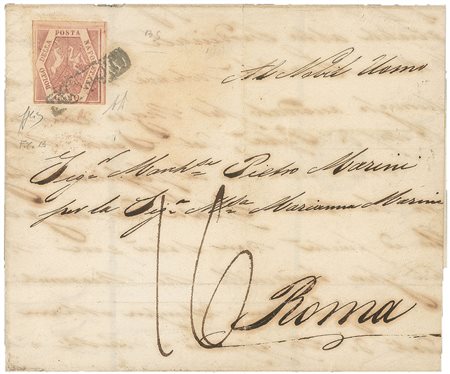 POSTA
NAPOLETANA
BOLLO DELLA
Al Nobil Uomo
Sig.r March.se Pietro Marini
per la Sig.ra M.sa Marianna Marini
16
Roma